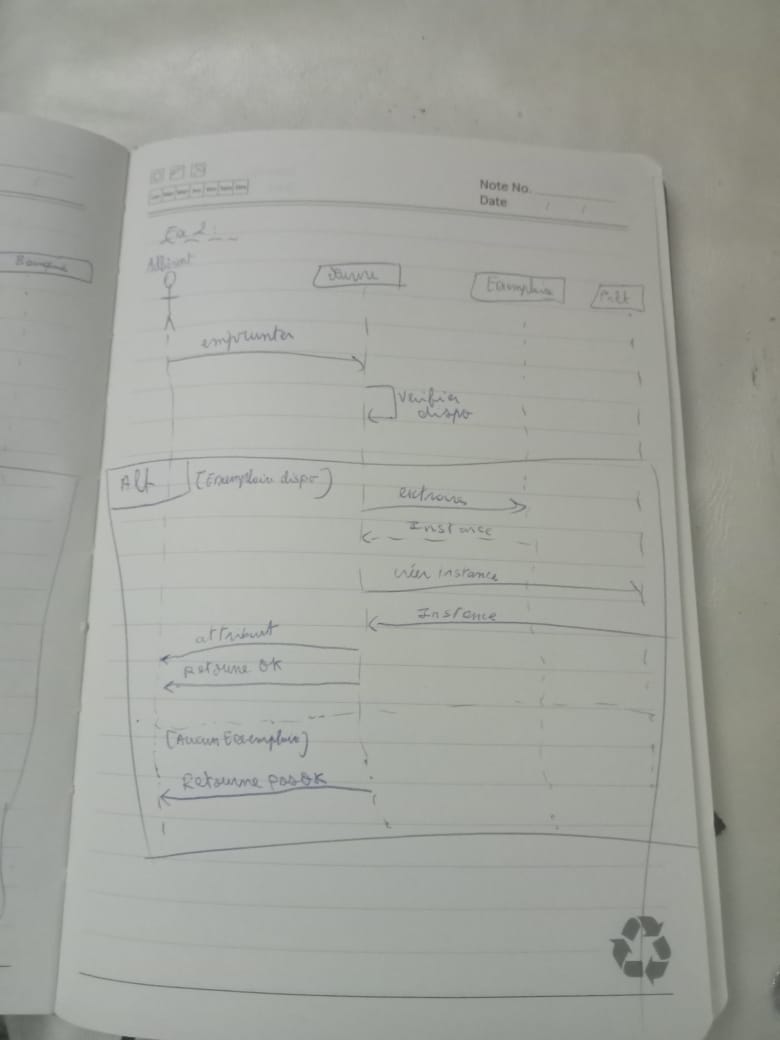 Note No.
Date / /
Ex 2:
Adhérent
Exemplaire
Prêt
emprunter
Vérifier
dispo
Alt
[Exemplaire dispo]
extraire
Instance
créer instance
Instance
attribut
Retourne OK
[Aucun Exemplaire]
Retourne pas OK